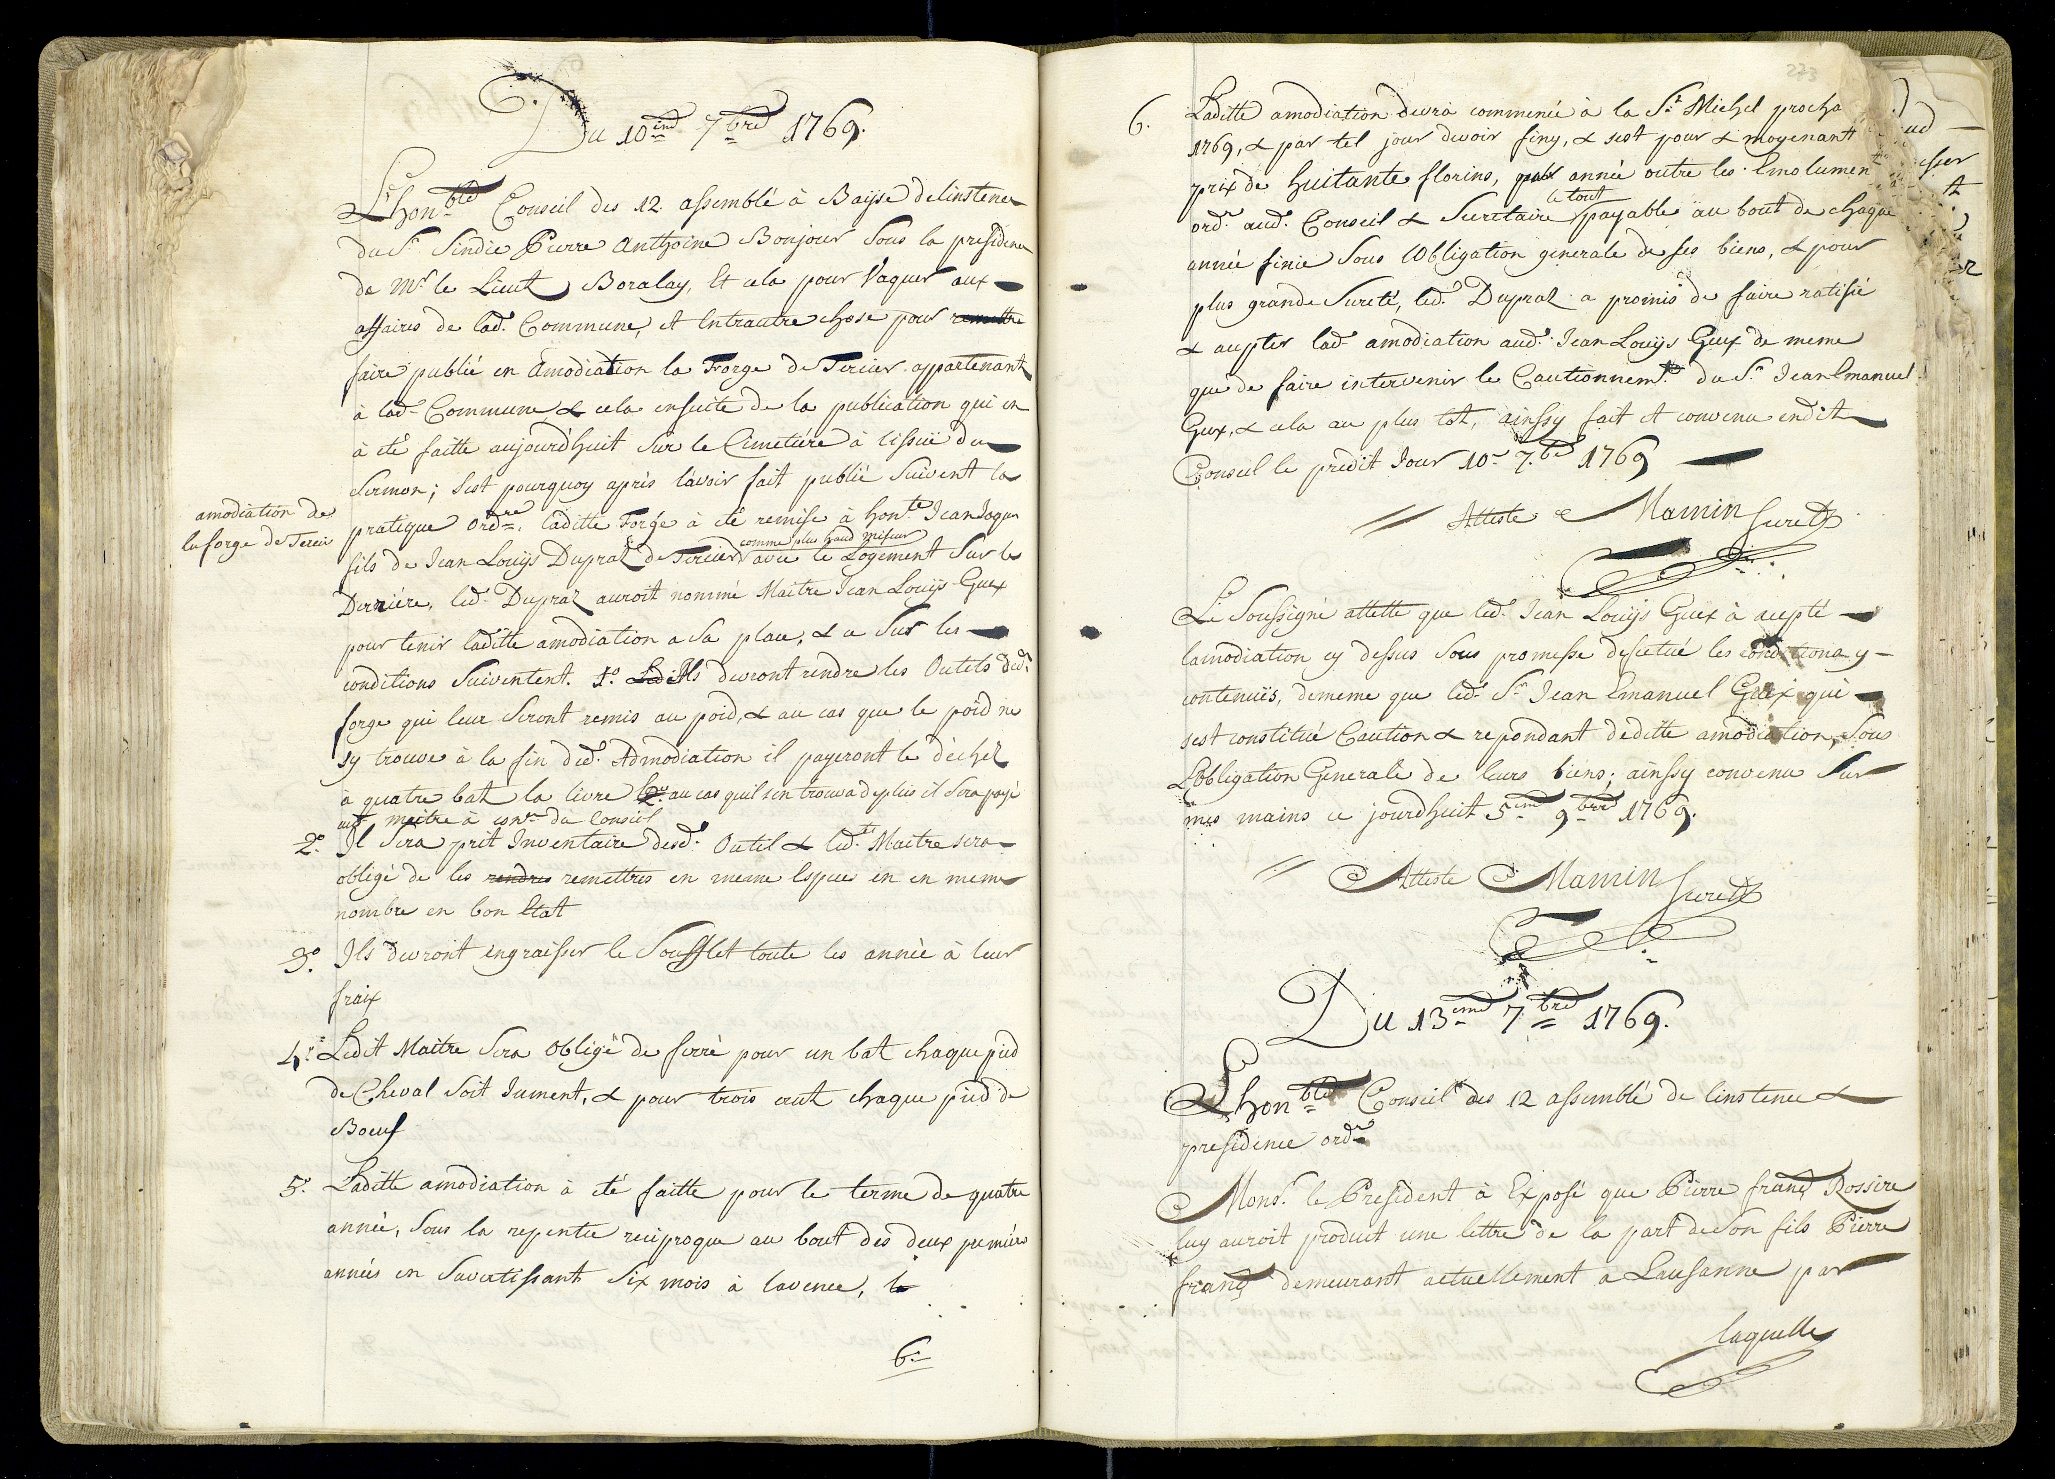 Du 10.eme 7.bre 1769.
Lhon.ble Conseil des 12 assemblé à Bayse de linstence
du S.r Sindic Pierre Anthoine Bonjour Sous la presidence
de M.r le Lieut Boralay, Et cela pour Vaquer aux
affaires de lad. Commune, et Entrautre chose pour remettre
faire publié en amodiation la Forge de Tercier appartenant
à lad. Commune & cela ensuite de la publication qui en
à été faitte aujourd'huit Sur le Cimetière à lissuë du
Sermon; Sest pourquoy après l'avoir fait publié Suivent la
amodiation de
la forge de Tercier
pratique ord.re, laditte Forge à été remise à hon.te Jean Jaques
comme plus haud miseur
fils de Jean Louÿs Dupraz de Tercier avec le Logement Sur le
Derrière, led. Dupraz auroit nommé Maitre Jean Louÿs Guex
pour tenir laditte amodiation a Sa place, & a Sur les
conditions Suiventent. 1.o Ils devront rendre les Outels dud.
forge qui leur Seront remis au poid, & au cas que le poid ne
sy trouve à la fin dud. Admodiation il payeront le déchet
à quatre bat la livre au cas quil sen trouva de plus il Sera payé
aud. maitre à con.ce du Conseil
2.o Il Sera prit Inventaire desd. Outil & led. Maitre sera
obligé de les rendres remettres en meme Espece en en meme
nombre en bon Etat
3.o Ils devront engraisser le Soufflet toute les année à leur
fraix
4.o Ledit Maitre Sera Obligé de ferré pour un bat chaque pied
de Cheval Soit Jument, & pour trois crut chaque pied de
Boeuf
5.o Laditte amodiation à été faitte pour le terme de quatre
année, Sous la repentue reciproque au bout des deux premières
années en Savertissant Six mois à lavence, le
6.o
273
6. Laditte amodiation devra commencé à la S.t Michel procha
1769, & par tel jour devoir finy, & sest pour & moyenant
prix de huitante florins, par année outre les Emolument
le tout
ord.r aud. Conseil & Secretaire payable au bout de chaque
année finie Sous l'Obligation generale de ses biens, & pour
plus grande Sureté, led. Dupraz a promis de faire ratifié
& accepter lad. amodiation aud. Jean Louÿs Guex de meme
que de faire intervenir le Cautionnem.t du S.r Jean Emanuel
Guex, & cela au plus tôt, ainssy fait et convenu endit
Conseil le predit Jour 10.e 7.bre 1769
Atteste Mamin Secret.
Le Soussigné atteste que led. Jean Louÿs Guex à accepté
lamodiation cy dessus Sous promesse desecuté les conditions y
contenuës, dememe que led. S.r Jean Emanuel Guex qui
sest constitué Caution & repondant deditte amodiation, Sous
L'obligation Generale de leurs biens; ainssy convenu Sur
mes mains ce jourdhuit 5.eme 9.bre 1769.
Atteste Mamin Secret.
Du 13.eme 7.bre 1769.
Lhon.ble Conseil des 12 assemblé de linstence &
presidence ord.re
Mons.r le President à Exposé que Pierre franç Rossire
luy auroit produit une lettre de la part de Son fils Pierre
franç demeurant actuellement a Lausanne par
laquelle